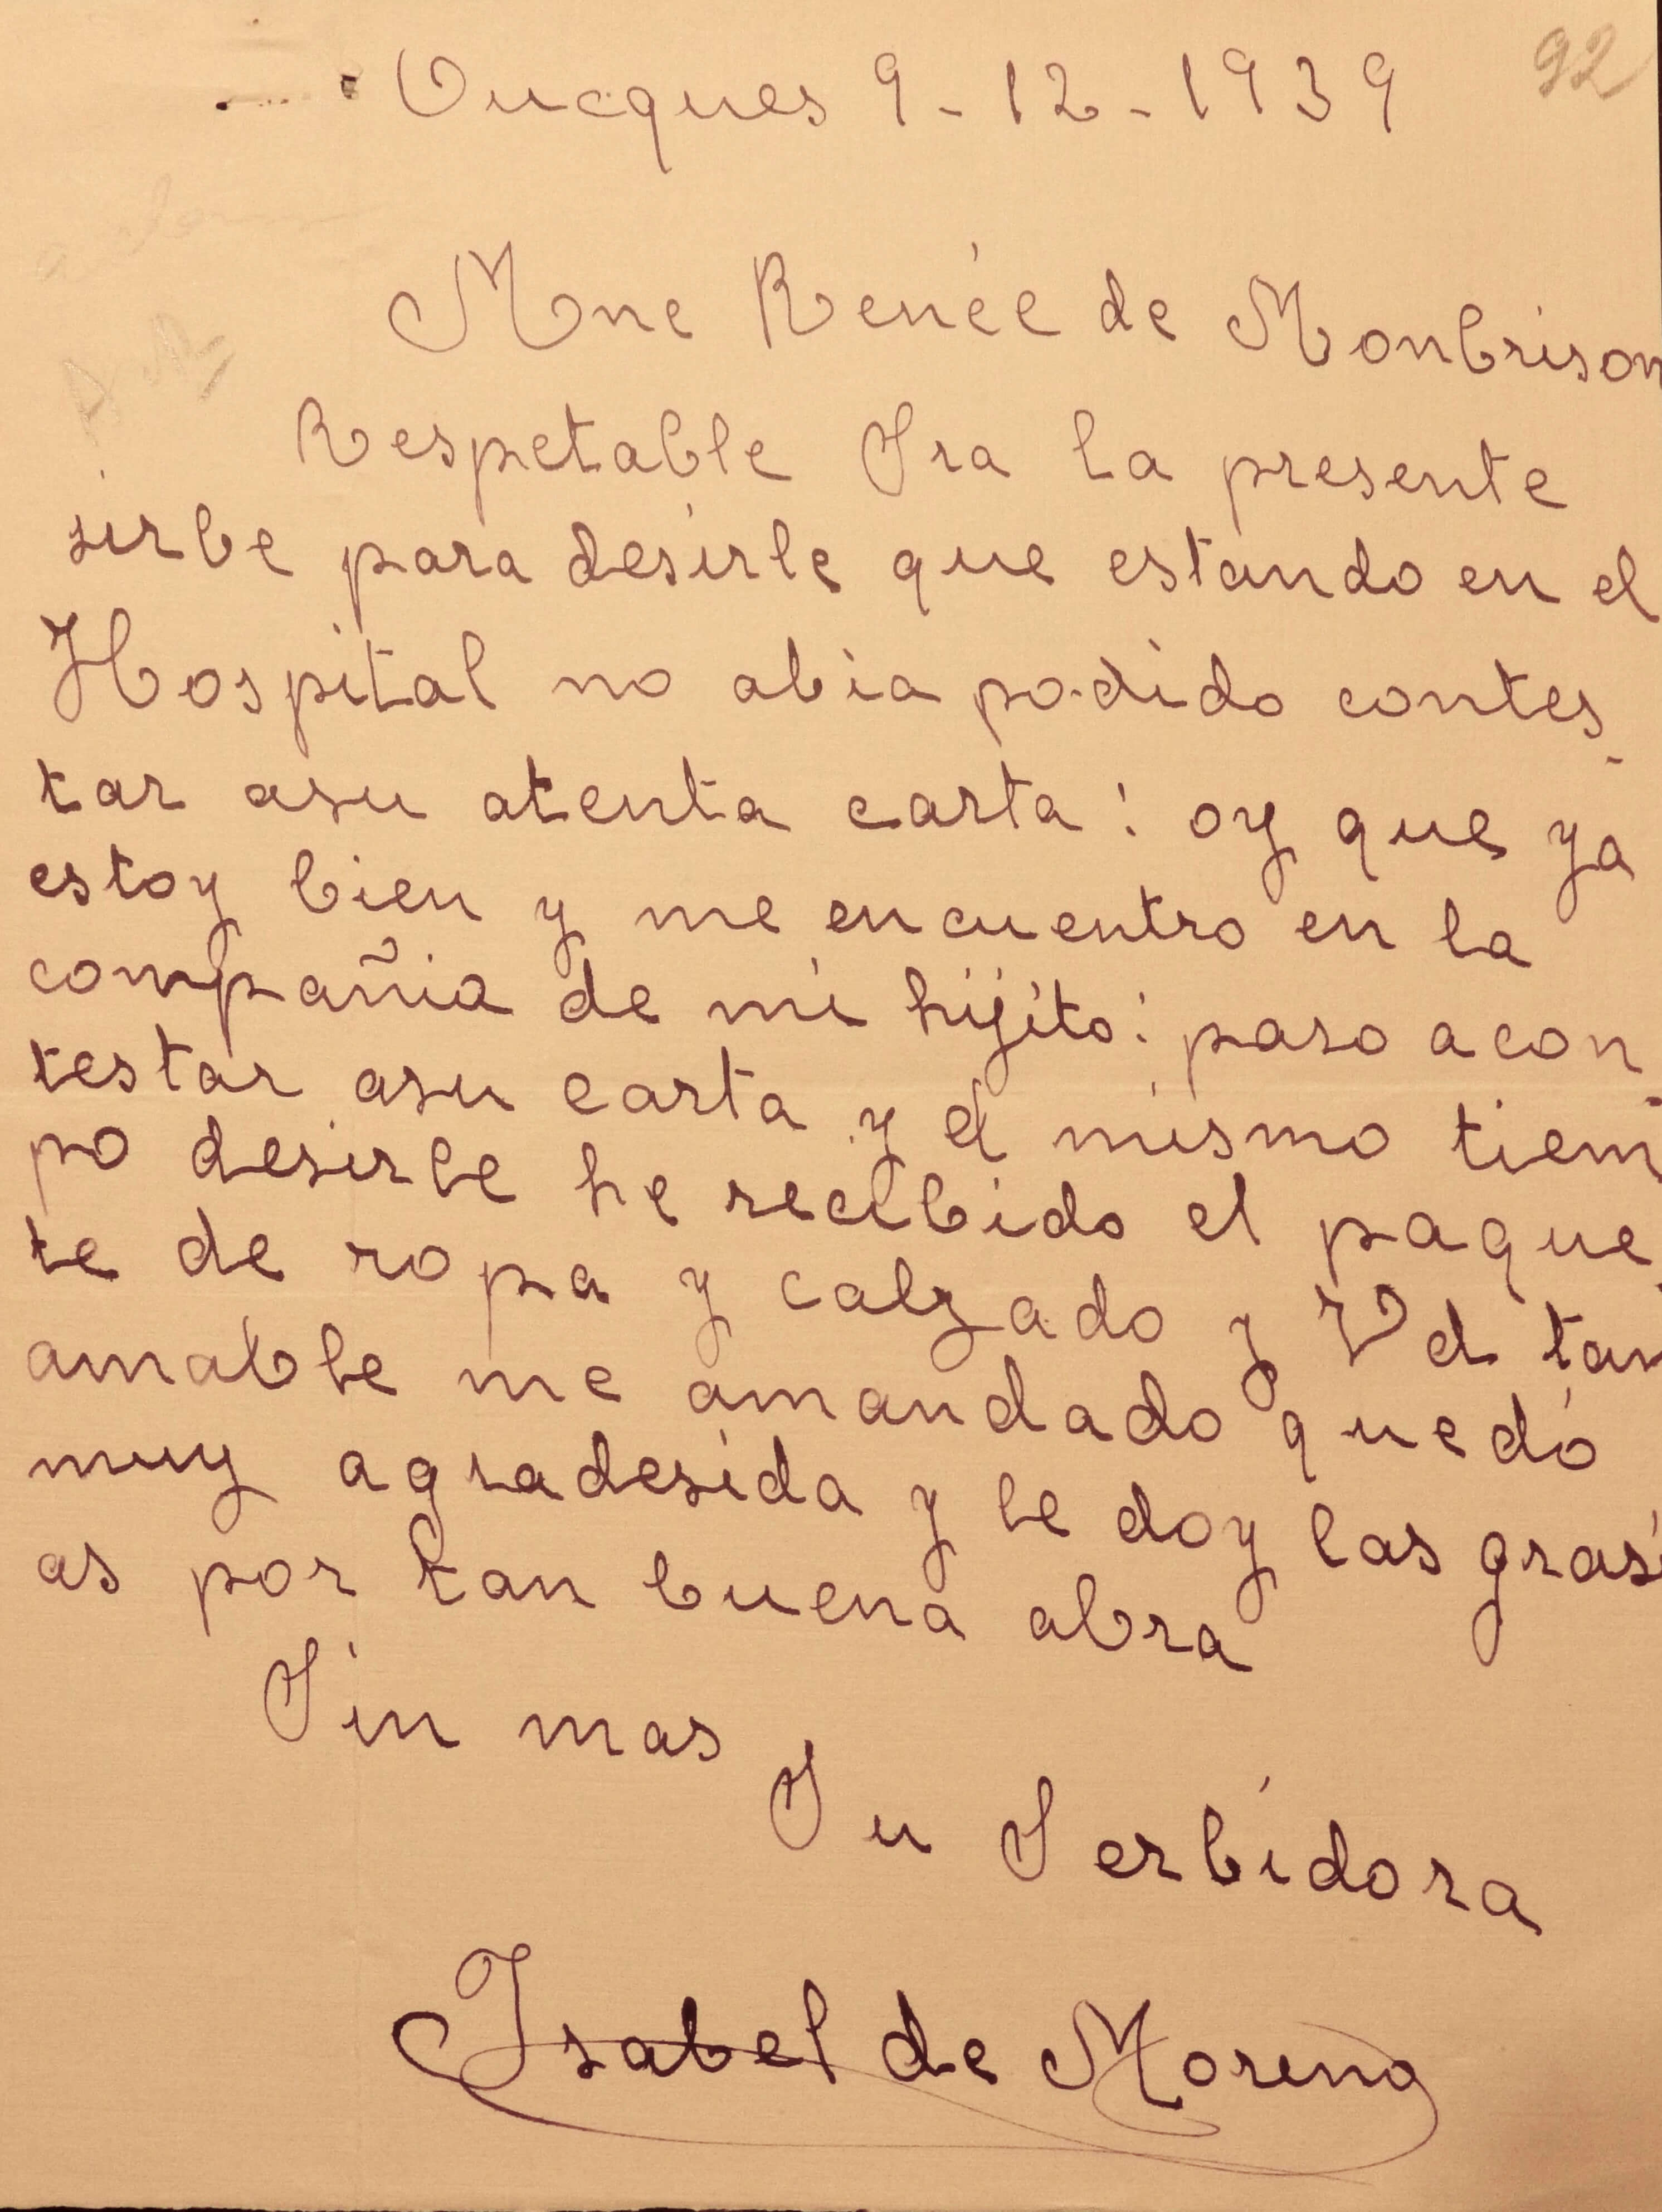 92
Oucques 9-12-1939
Mne Renée de Monbrison
Respetable Sra la presente
sirbe para desirle que estando en el
Hospital no abia podido contes-
tar asu atenta carta: oy que ya
estoy bien y me encuentro en la
compañia de mi hijito: paso acon-
testar asu carta y el mismo tiem
po desirle he recibido el paque-
te de ropa y calzado y Vd tan
amable me amandado quedó
muy agradesida y le doy las grasi
as por tan buena abra
Sin mas
Su Serbidora
Isabel de Moreno